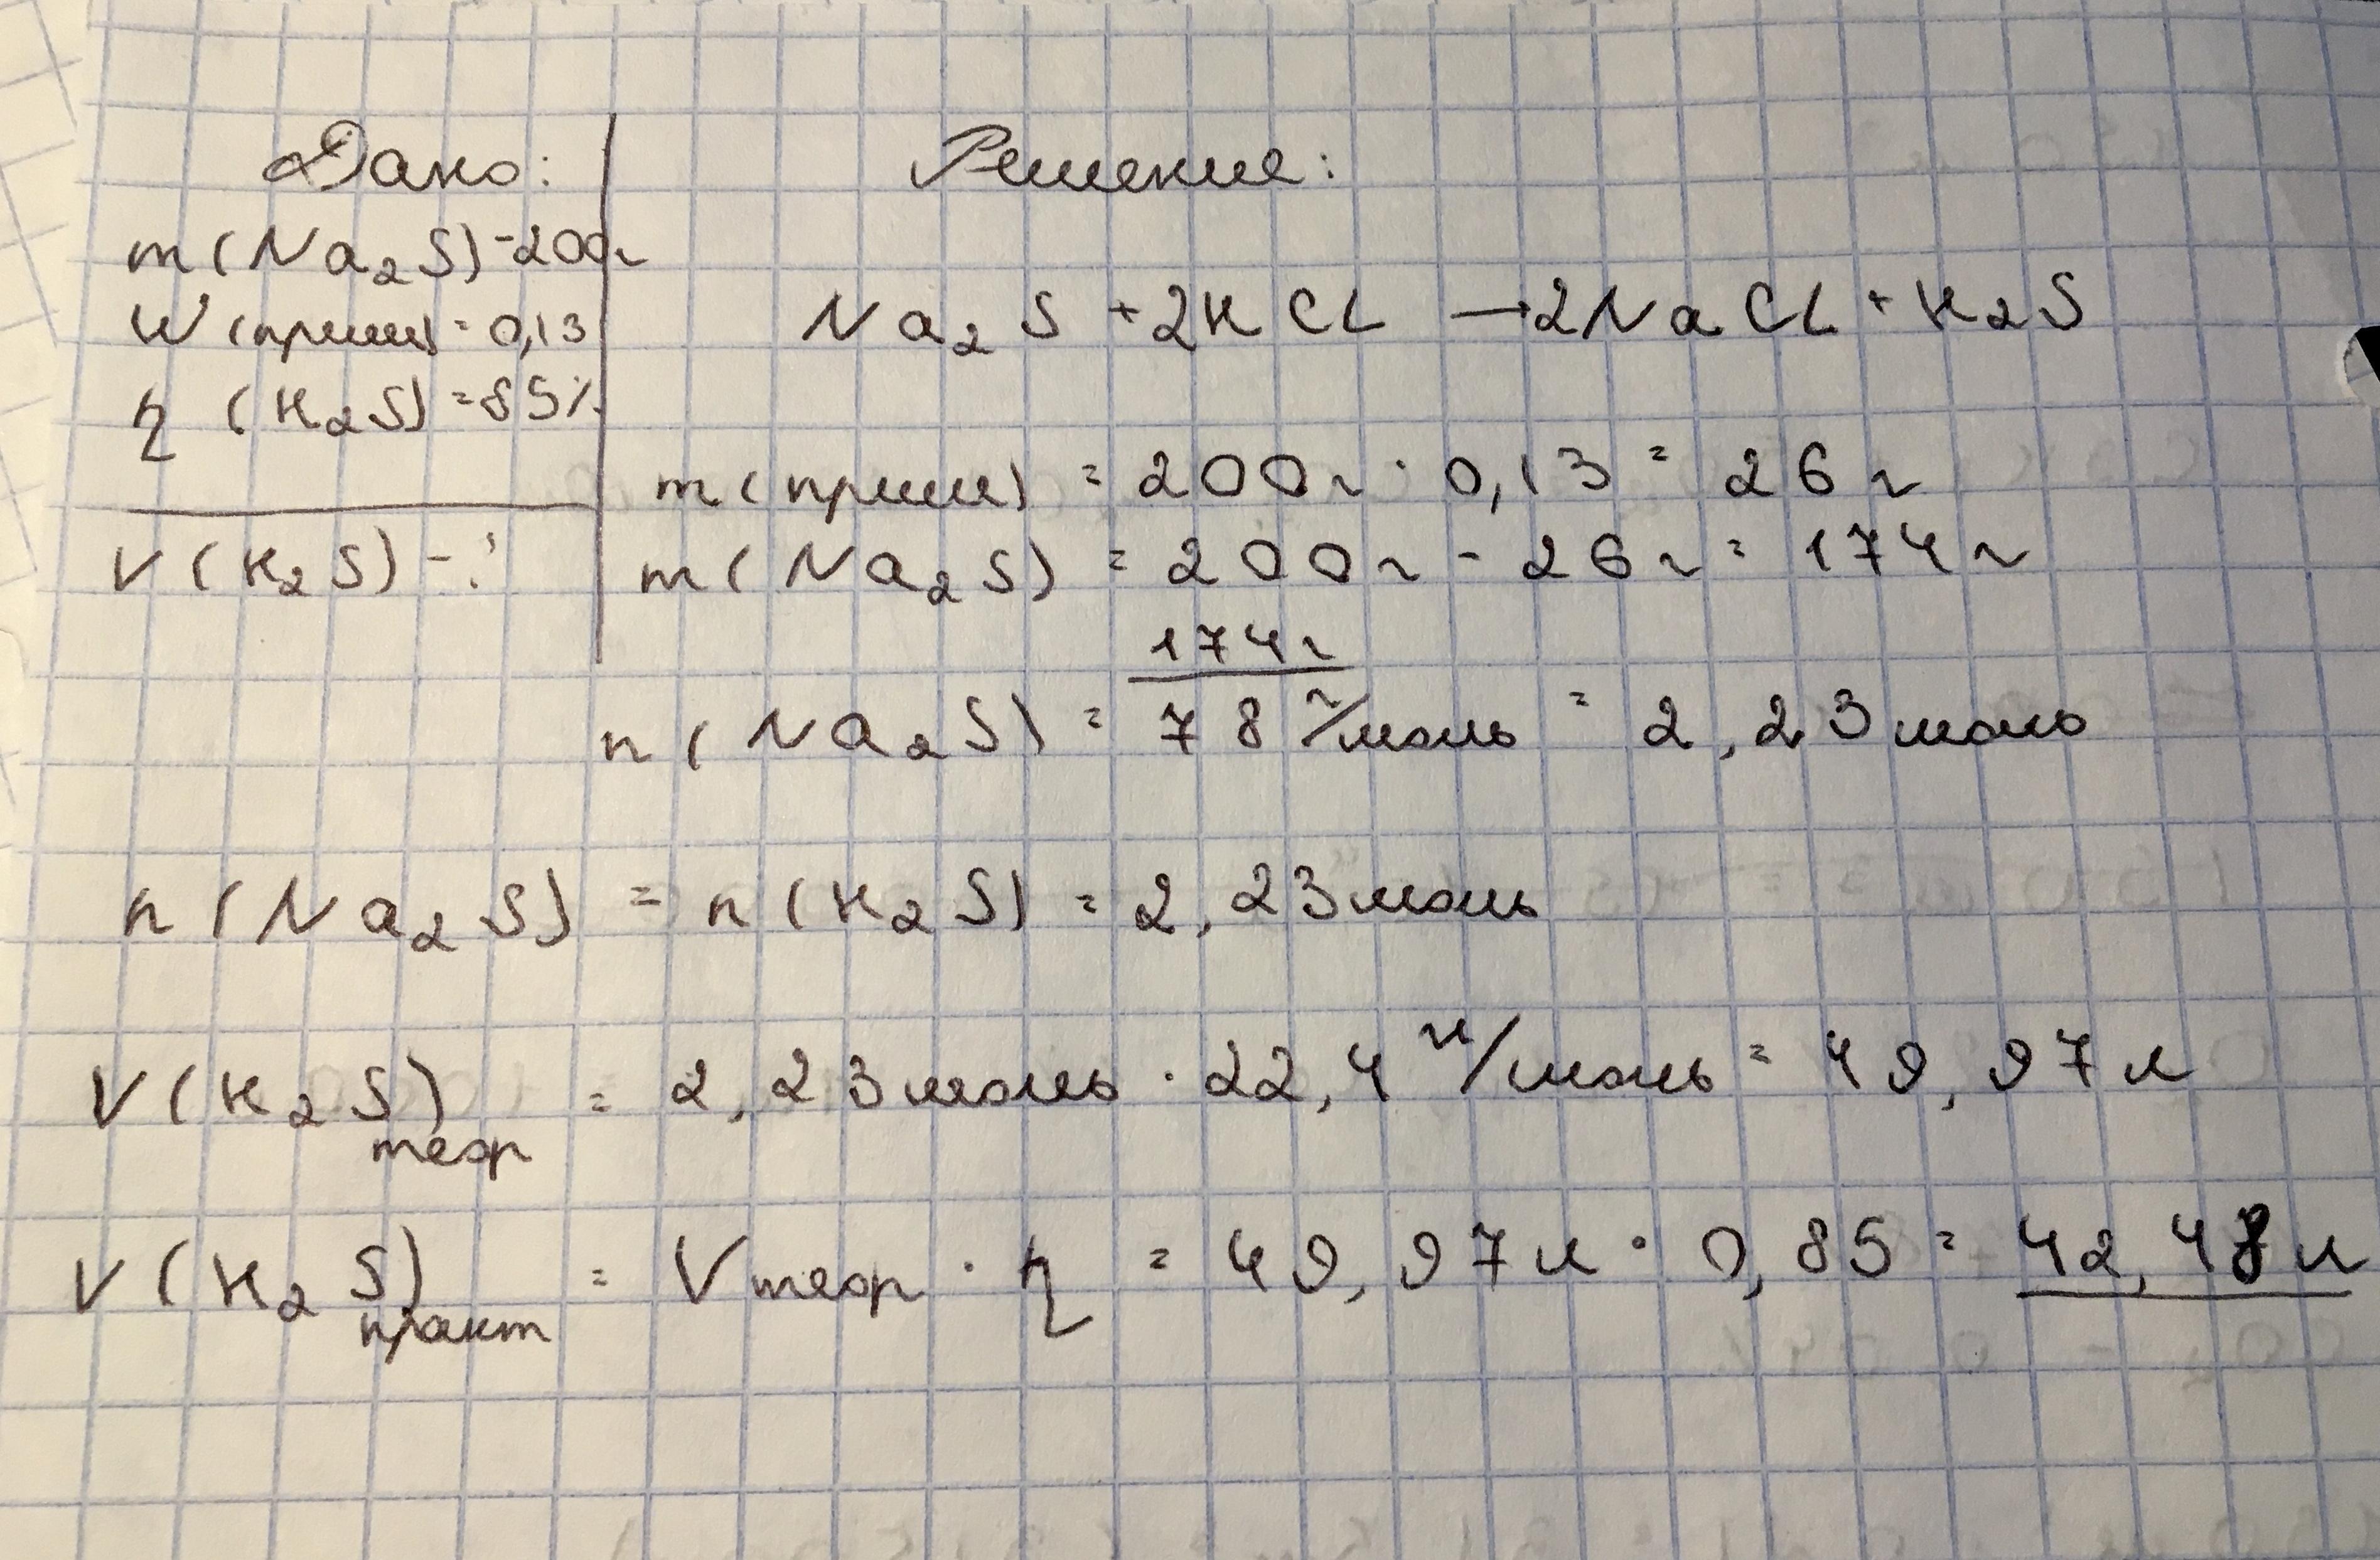 Дано:
m(Na2S)-200г
W(прим)=0,13
η(H2S)=85%
V(H2S)-?
Решение:
Na2S+2HCl→2NaCl+H2S
m(прим)=200г·0,13=26г
m(Na2S)=200г-26г=174г
174г
n(Na2S)=78г/моль=2,23моль
n(Na2S)=n(H2S)=2,23моль
V(H2S)теор=2,23моль·22,4л/моль=49,97л
V(H2S)практ=Vтеор·η=49,97л·0,85=42,48л